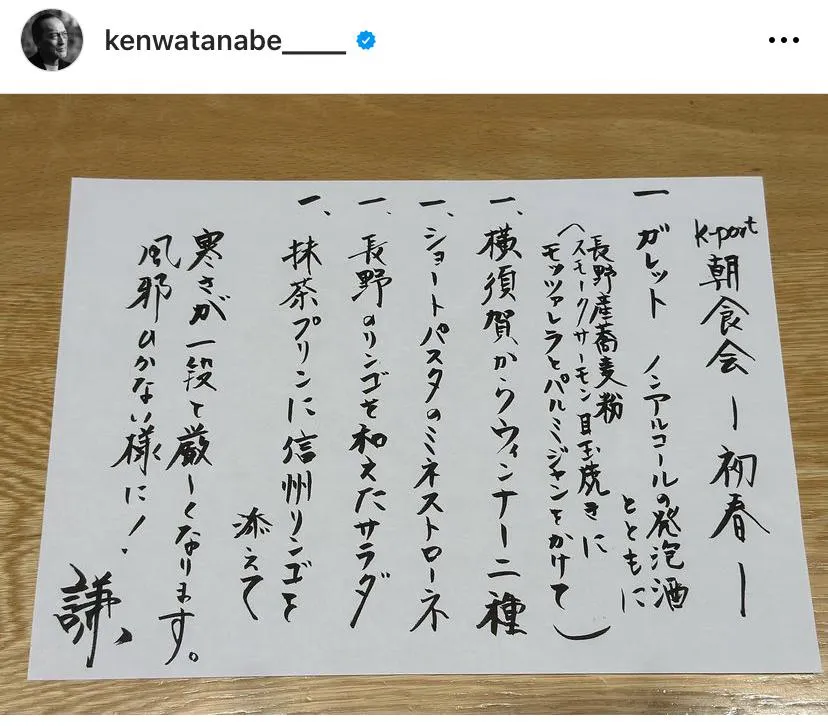 kenwatanabe_____
K-port 朝食会 ー初春ー
一 ガレット ノンアルコールの発泡酒
とともに
長野産蕎麦粉
(スモークサーモン目玉焼きに
モッツァレラとパルミジャンをかけて)
一、横須賀からウィンナー二種
一、ショートパスタのミネストローネ
一、長野のリンゴを和えたサラダ
一、抹茶プリンに信州リンゴを
添えて
寒さが一段と厳しくなります。
風邪ひかない様に!
謙、